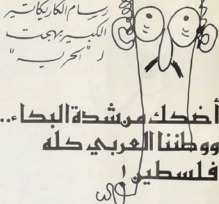 رسام الكاريكاتير
الكبير بهجت
لـ "الحرية"
أضحك من شدة البكاء..
ووطننا العربي كله
فلسطين!